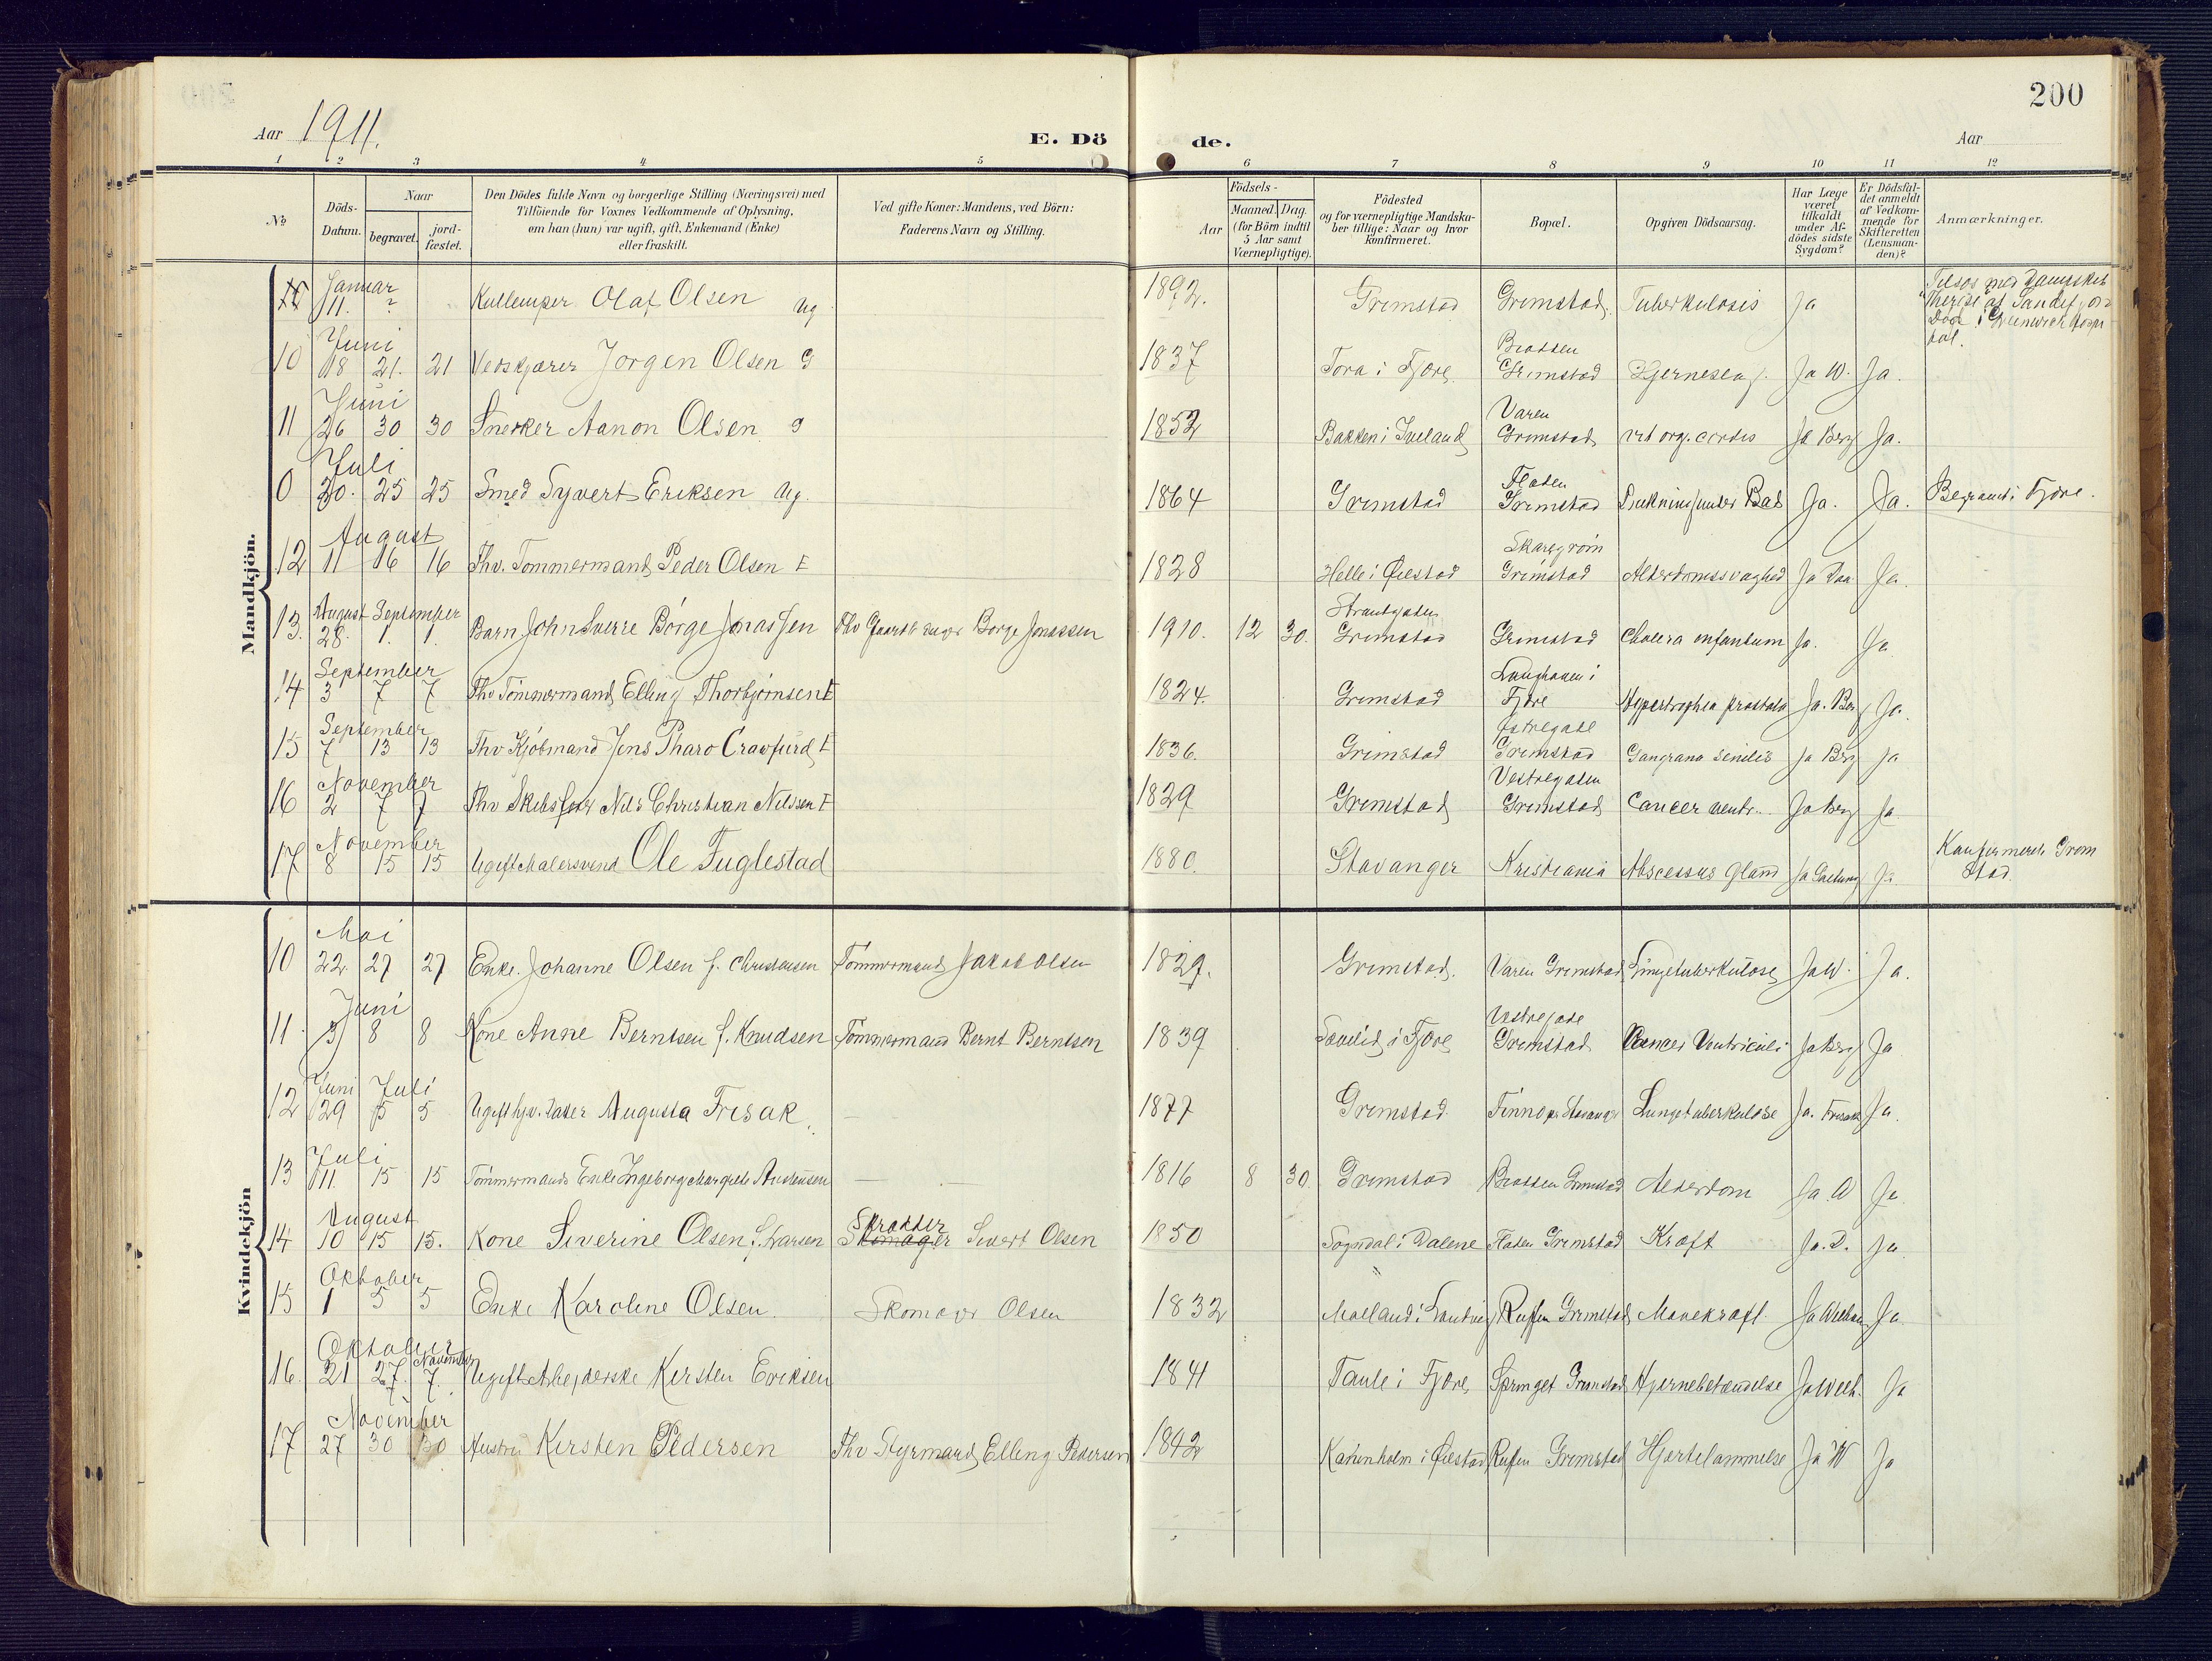 200
Aar 1911.
E. Dö
de.
Aar
1 2 3 4 5 6 7 8 9 10 11 12
No
Döds-Datum.
Naar
begravet.
jord-fæstet.
Den Dödes fulde Navn og borgerlige Stilling (Næringsvei) med
Tilföiende for Voxnes Vedkommende af Oplysning,
om han (hun) var ugift, gift, Enkemand (Enke)
eller fraskilt.
Ved gifte Koner: Mandens, ved Börn:
Faderens Navn og Stilling.
Födsels-
Aar
Maaned. Dag.
(for Börn indtil
5 Aar samt
Værnepligtige).
Födested
og for værnepligtige Mandska-
ber tillige: Naar og hvor
konfirmeret.
Bopæl.
Opgiven Dödsaarsag.
Har Læge
været
tilkaldt
under Af-
dödes sidste
Sygdom?
Er Dödsfal-
det anmeldt
af Vedkom-
mende for
Skifteretten
(Lensman-
den)?
Anmærkninger.
Mandkjön.
Januar
11. ? Kullemper Olaf Olsen Ug 1892. Grimstad Grimstad Tuberkulosis Ja
Juni Bratten
10 18 21. 21 Vedskjærer Jorgen Olsen G 1837 i Fjære Grimstad Ja W. Ja.
Juni Varen
11 26 30 30 Snekker Aanon Olsen g 1852 Bakken i Grimstad vit org. cordis Ja Berg Ja.
Juli Fladen
0 20. 25 25 Smed Syvert Eriksen Ug. 1864 Grimstad Grimstad Drukning under Bad Ja. Ja. i Fjære.
August
12 11 16 16 Fhv. Tømmermand Peder Olsen E 1828 Helle i Øiestad Grimstad Alderdomssvaghed Ja Ja.
August September Strandgaden
13. 28. 1. 1. Barn John Sverre Børge Jonassen Fhv Børge Jonassen 1910. 12 30. Grimstad Grimstad Cholera infantum Ja. Ja
September i
14 3 7 7 Fhv Tømmermand Elling Thorbjørnsen E 1824. Grimstad Fjære Hypertrophia prostata Ja. Ber Ja.
September Østregade
15 7 13 13 Fhv Kjøbmand Jens Pharo Crawfurd E 1836. Grimstad Grimstad Gangræna senilis Ja Berg Ja
November Vestregaden
16 2 7 7 Fhv Skibsfører Nils Christian Nilssen E 1829 Grimstad Grimstad Cancer ventr. Ja Berg Ja
November
17 8 15 15 Ugift Malersvend Ole Fuglestad 1880. Stavanger Kristiania Abscessus gland Ja Ja. Konfirmeret Grim
stad
Kvindekjön
Mai
10 22. 27 27 Enke. Johanne Olsen f. Christensen Tømmermand Jakob Olsen 1829. Grimstad. Varen Grimstad Lungetuberkulose JaW. Ja.
Juni Vestregade
11. 3 8 8 Kone Anne Berntsen f. Knudsen Tømmermand Bernt Berntsen 1839 i Fjære Grimstad Cancer Ventriculi Ja Berg Ja
Juni Juli
12 29 5 5 Ugift Augusta Frisak — 1877 Grimstad Lungetuberkulose Ja. Frisak Ja.
Juli
13 11. 15 15 Tømmermands Enke Ingeborg Margrethe — — 1816 8 30 Grimstad Bratten Grimstad Alderdom Ja. Ja
August Skrædder
14 10 15 15. Kone Siverine Olsen f. Larsen Skomager Sivert Olsen 1850 Sogndal i Dalene Fladen Grimstad Kræft Ja. D. Ja
Oktober
15 1 5 5 Enke Karoline Olsen. Skomager Olsen 1832 Molland i Landvig Grimstad Mavekræft. Ja Ja
Oktober November
16. 21 27. 7. Ugift Arbejderske Kirsten Eriksen 1841 i Fjære Springet Grimstad Hjernebetændelse Ja Ja
November
17 27 30 30 Hustru Kirsten Pedersen Fhv Styrmand Elling Pedersen 1842 i Øiestad Grimstad Hjertelammelse Ja W Ja